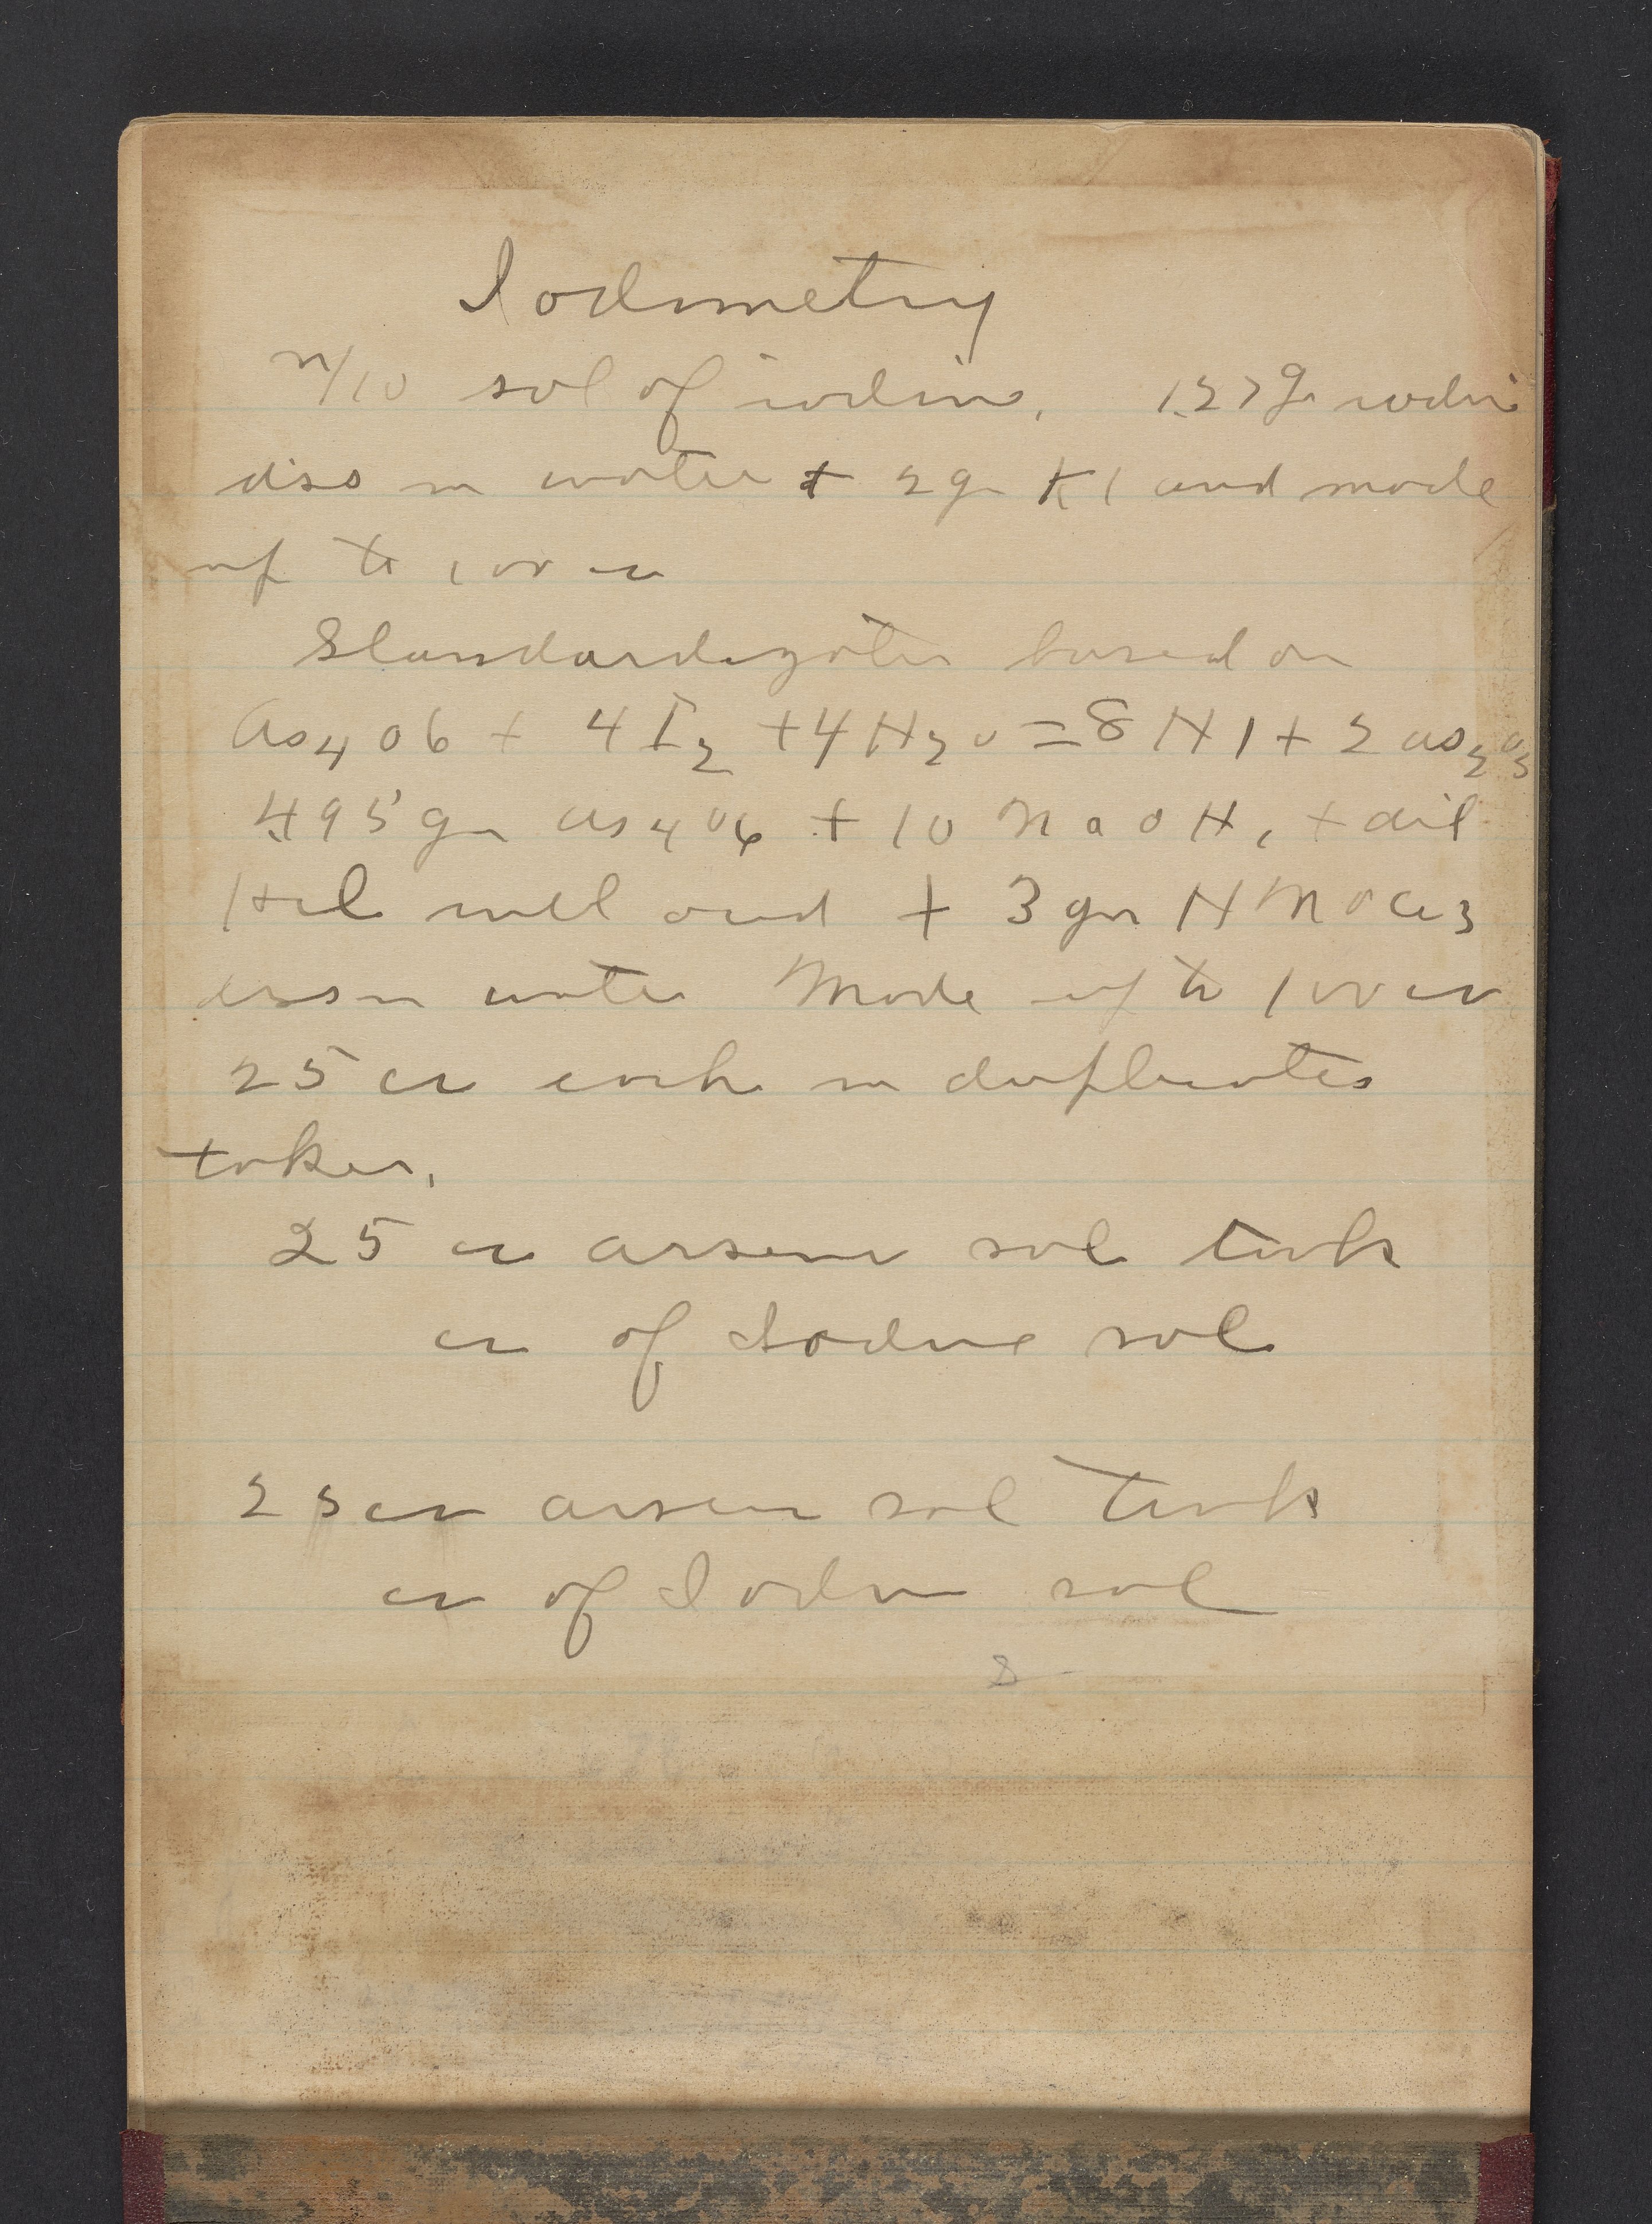 Iodimetry
n/10 sol of iodine. 1.27 g iodine
diss in water + 2 gm KI and made
up to 100 cc
Standardization based on
As4O6 + 4I2 + 4H2O = 8HI + 2As2O5
.495 gm As4O6 + 10 NaOH, + dil
HCl until acid + 3 gm
diss in water Made up to 100 cc
25 cc each in duplicates
taken.
25 cc arsenic sol took
cc of Iodine sol
25 cc arsenic sol took
cc of Iodine sol